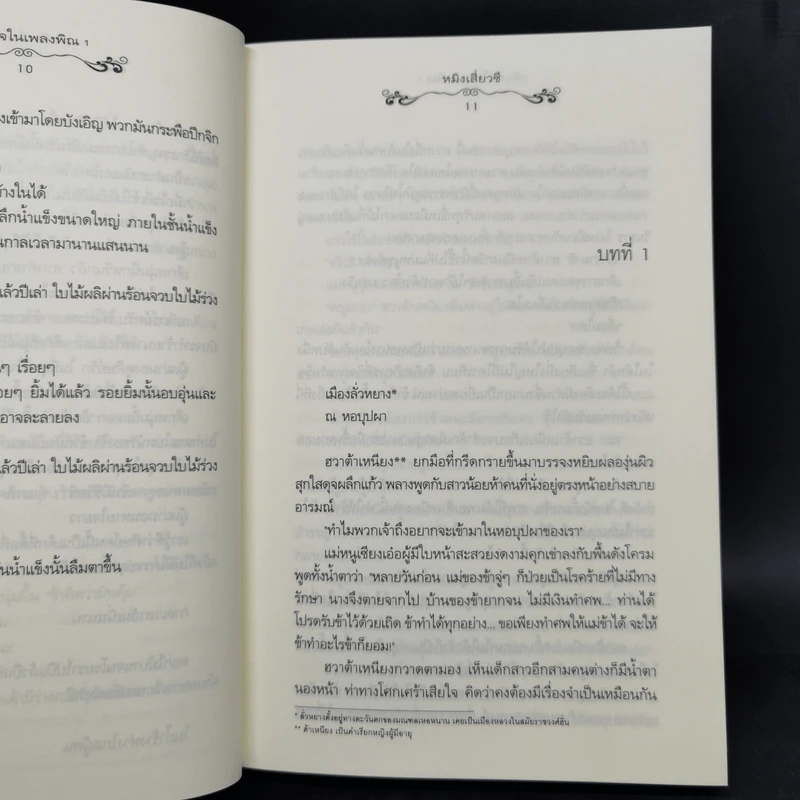 จในเพลงพิณ 1
10
งเข้ามาโดยบังเอิญ พวกมันกระพือปีกจิก
ข้างในได้
ลึกน้ำแข็งขนาดใหญ่ ภายในชั้นน้ำแข็ง
นกาลเวลามานานแสนนาน
แล้วปีเล่า ใบไม้ผลิผ่านร้อนจวบใบไม้ร่วง
นๆ เรื่อยๆ
อยๆ ยิ้มได้แล้ว รอยยิ้มนั้นอบอุ่นและ
อาจละลายลง
แล้วปีเล่า ใบไม้ผลิผ่านร้อนจวบใบไม้ร่วง
ันน้ำแข็งนั้นลืมตาขึ้น
หมิงเสี่ยวซี
11
บทที่ 1
เมืองลั่วหยาง*
ณ หอบุปผา
ฮวาต้าเหนียง** ยกมือที่กรีดกรายขึ้นมาบรรจงหยิบผลองุ่นผิว
สุกใสดุจผลึกแก้ว พลางพูดกับสาวน้อยห้าคนที่นั่งอยู่ตรงหน้าอย่างสบาย
อารมณ์
"ทำไมพวกเจ้าถึงอยากจะเข้ามาในหอบุปผาของเรา"
แม่หนูเซียงเอ๋อผู้มีใบหน้าสะสวยงดงามคุกเข่าลงกับพื้นดังโครม
พูดทั้งน้ำตาว่า "หลายวันก่อน แม่ของข้าจู่ๆ ก็ป่วยเป็นโรคร้ายที่ไม่มีทาง
รักษา นางจึงตายจากไป บ้านของข้ายากจน ไม่มีเงินทำศพ... ท่านได้
โปรดรับข้าไว้ด้วยเถิด ข้าทำได้ทุกอย่าง... ขอเพียงทำศพให้แม่ข้าได้ จะให้
ข้าทำอะไรข้าก็ยอม!"
ฮวาต้าเหนียงกวาดตามอง เห็นเด็กสาวอีกสามคนต่างก็มีน้ำตา
นองหน้า ท่าทางโศกเศร้าเสียใจ คิดว่าคงต้องมีเรื่องจำเป็นเหมือนกัน
* ลั่วหยางตั้งอยู่ทางตะวันตกของมณฑลเหอหนาน เคยเป็นเมืองหลวงในสมัยราชวงศ์ฮั่น
** ต้าเหนียง เป็นคำเรียกหญิงผู้มีอายุ